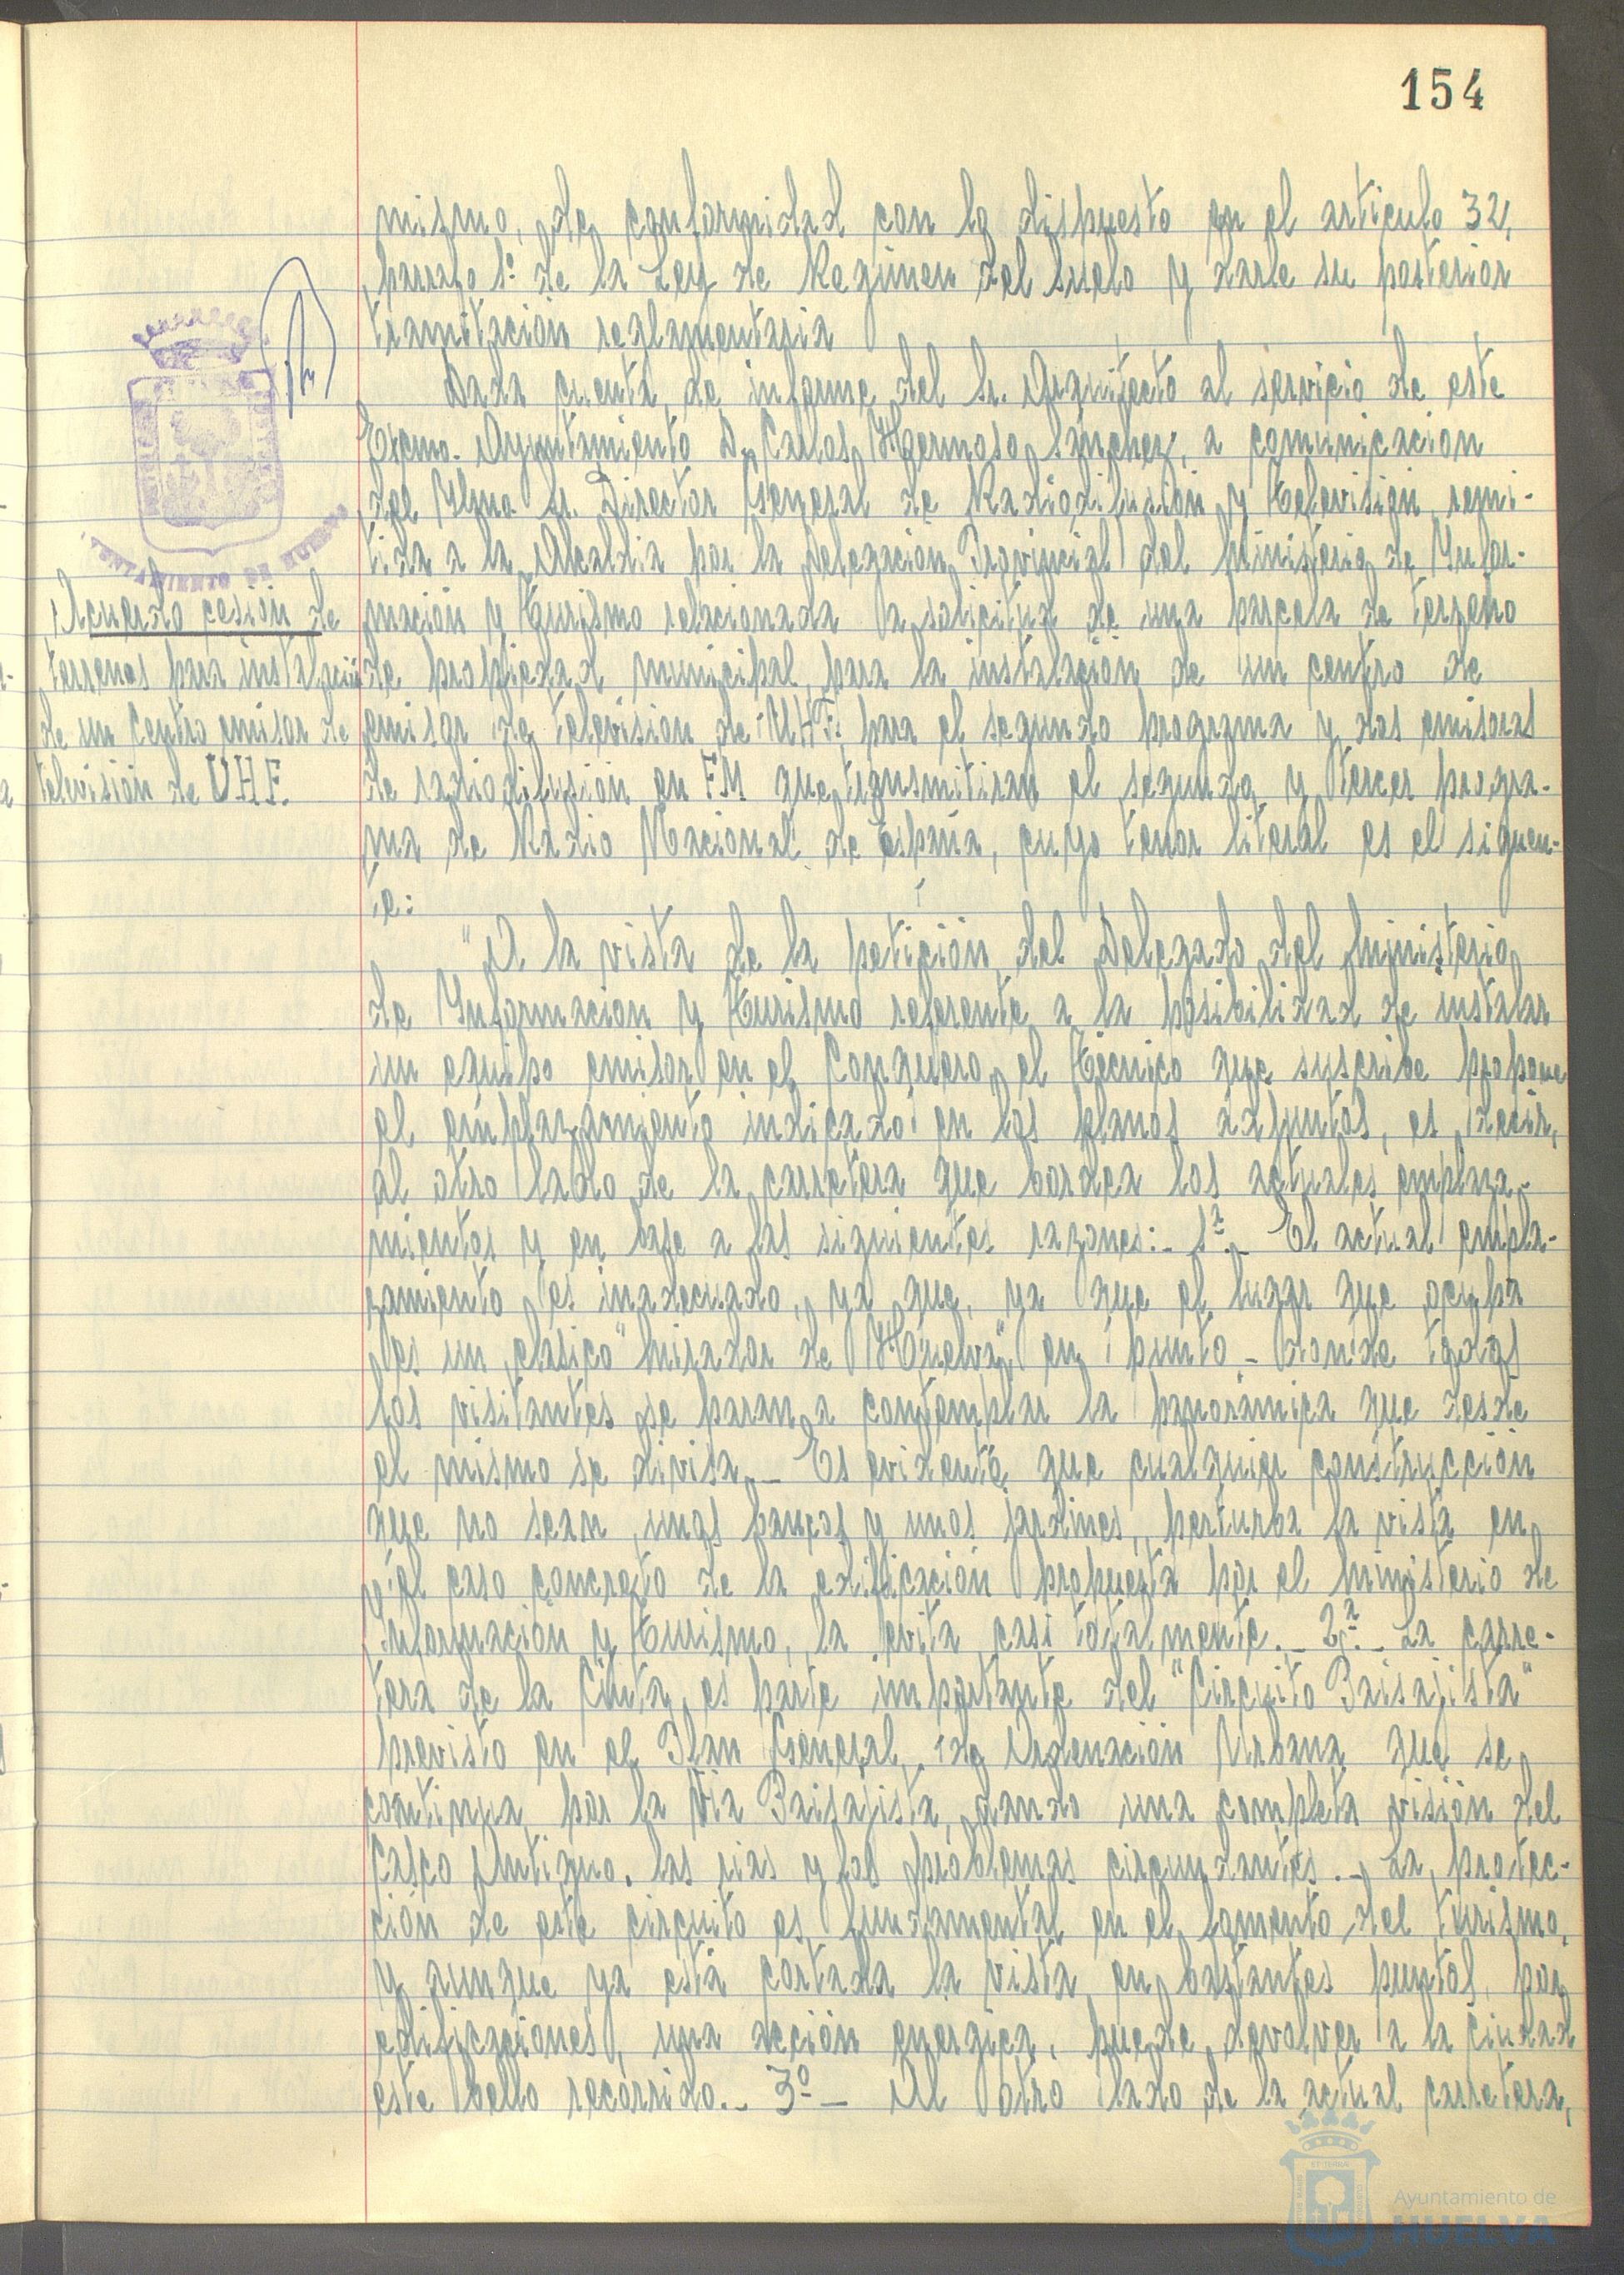 154
mismo, de conformidad con lo dispuesto en el articulo 32,
parrafo 1º de la Ley de Regimen del Suelo y darle su posterior
tramitación reglamentaria
Dada cuenta de informe del Sr. Arquitecto al servicio de este
Excmo. Ayuntamiento D. Carlos Hermoso Sanchez, a comunicacion
del Ylmo Sr. Director General de Radiodifusión y Television, remi-
tida a la Alcaldia por la Delegacion Provincial del Ministerio de Ynfor-
mación y Turismo relacionada a solicitud de una parcela de terreno
de propiedad municipal, para la instalación de un centro de
emisor de television de UHF, para el segundo programa y dos emisoras
de radiodifusión en FM que transmitiran el segundo y tercer progra-
ma de Radio Nacional de España, cuyo tenor literal es el siguien-
te:
AYUNTAMIENTO DE HUELVA
Acuerdo cesión de
terrenos para instalación
de un Centro emisor de
televisión de UHF.
"A la vista de la petición del Delegado del Ministerio
de Ynformacion y Turismo referente a la posibilidad de instalar
un equipo emisor en el Conquero, el Técnico que suscribe propone
el emplazamiento indicado en los planos adjuntos, es decir,
al otro lado de la carretera que bordea los actuales emplaza-
mientos y en base a las siguientes razones:- 1ª.- El actual empla-
zamiento es inadecuado, ya que, ya que el lugar que ocupa
es un clasico "Mirador de Huelva" en punto - donde todos
los visitantes se paran a contemplar la panorámica que desde
el mismo se divisa.- Es evidente que cualquier construcción
que no sean unos bancos y unos jardines, perturba la vista en
el caso concreto de la edificación propuesta por el Ministerio de
Ynformación y Turismo, la evita casi totalmente.- 2ª.- La carre-
tera de la Cinta, es parte importante del "Circuito Paisajista"
previsto en el Plan General de Ordenación Urbana que se
continua por la Via Paisajista, dando una completa visión del
Casco Antiguo, las rias y los problemas circundantes.- La protec-
ción de este circuito es fundamental en el fomento del turismo,
y aunque ya está cortada la vista en bastantes puntos, por
edificaciones, una acción energica, puede devolver a la Ciudad
este bello recorrido.- 3º - Al otro lado de la actual carretera,
Ayuntamiento de
HUELVA